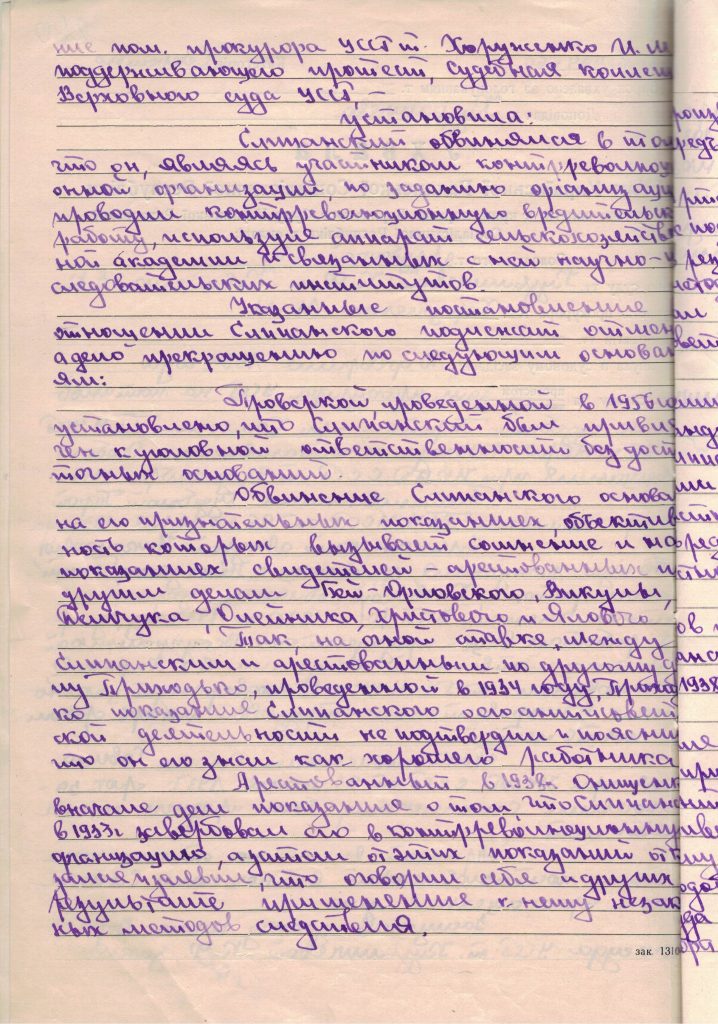 ние пом. прокурора УССР т. Хоруженко И. И.
поддерживающего протест, судебная коллег
Верховного суда УССР, –
установила:
Слипанский обвинялся в том
что он, являясь участником контрреволюци
онной организации, по заданию организаци
проводил контрреволюционную вредительск
работу, используя аппарат сельскохозяйствен
ной академии и связанных с ней научно-и
следовательских институтов.
Указанные постановление
отношении Слипанского подлежат отмен
а дело прекращению по следующим основан
ям:
Проверкой, проведенной в 1956
установлено, что Слипанский был привле
чен к уголовной ответственности без дост
точных оснований.
Обвинение Слипанского основа
на его признательных показаниях, объектив
ность которых вызывает сомнение и на
показаниях свидетелей – арестованных
другим делам Бей-Орловского, Викулы,
Олейника, Христового и Ялового
Так, на очной ставке, между
Слипанским и арестованным по другому
му Приходько, проведенной в 1934 году, Приход
ко показание Слипанского
ской деятельности не подтвердил и пояснил
что он его знал как хорошего работника
Арестованный в 1938г. Онищенк
вначале дал показание о том что Слипански
в 1933г завербовал его в контрреволюционную
организацию, а затем от этих показаний от
что оговорил себя и других
результате применение к нему незак
ных методов следствия.
зак. 1310